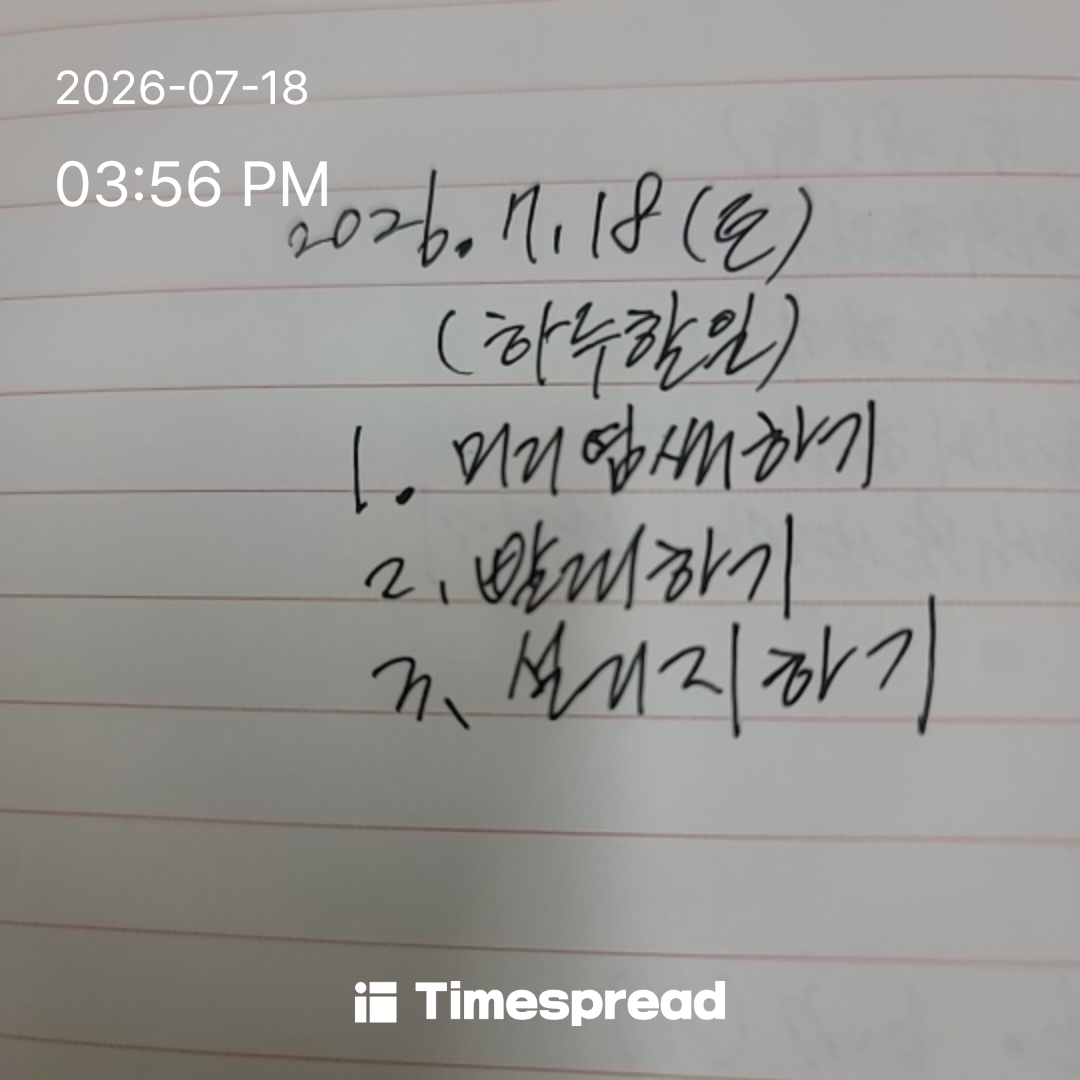 2026-07-18
03:56 PM
2026. 7. 18 (토)
(하루할일)
1. 머리염색하기
2. 빨래하기
3. 설거지하기
Timespread